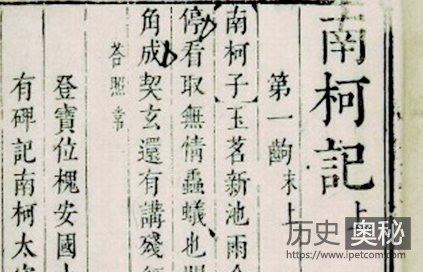 南柯記 上
第一齣 末上
南柯子】玉茗新池雨金
停看取無情蟲蟻也關
角成契玄還有講殘經
答照常
登寶位槐安國土
有碑記南柯太守
历史奥秘
www.ipetcom.com